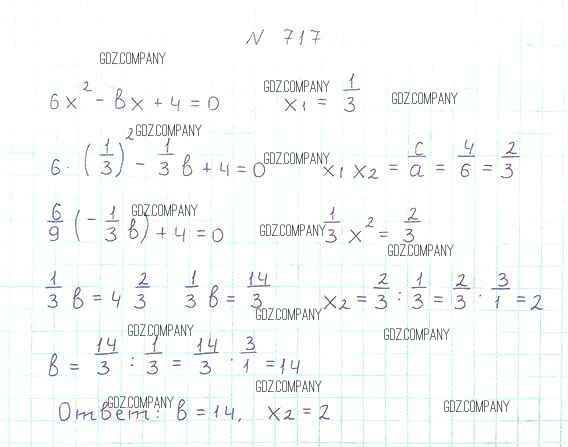 N 717
GDZ.COMPANY
6x² - вx + 4 = 0 GDZ.COMPANY x₁ = 1/3 GDZ.COMPANY
GDZ.COMPANY
6 · (1/3)² - 1/3 в + 4 = 0 GDZ.COMPANY x₁ x₂ = c/a = 4/6 = 2/3
GDZ.COMPANY
6/9 (- 1/3 в) + 4 = 0 GDZ.COMPANY 1/3 · x² = 2/3
GDZ.COMPANY
1/3 в = 4 2/3 1/3 в = 14/3 x₂ = 2/3 : 1/3 = 2/3 · 3/1 = 2
GDZ.COMPANY
GDZ.COMPANY GDZ.COMPANY
в = 14/3 : 1/3 = 14/3 · 3/1 = 14
GDZ.COMPANY
GDZ.COMPANY GDZ.COMPANY
Ответ: в = 14, x₂ = 2